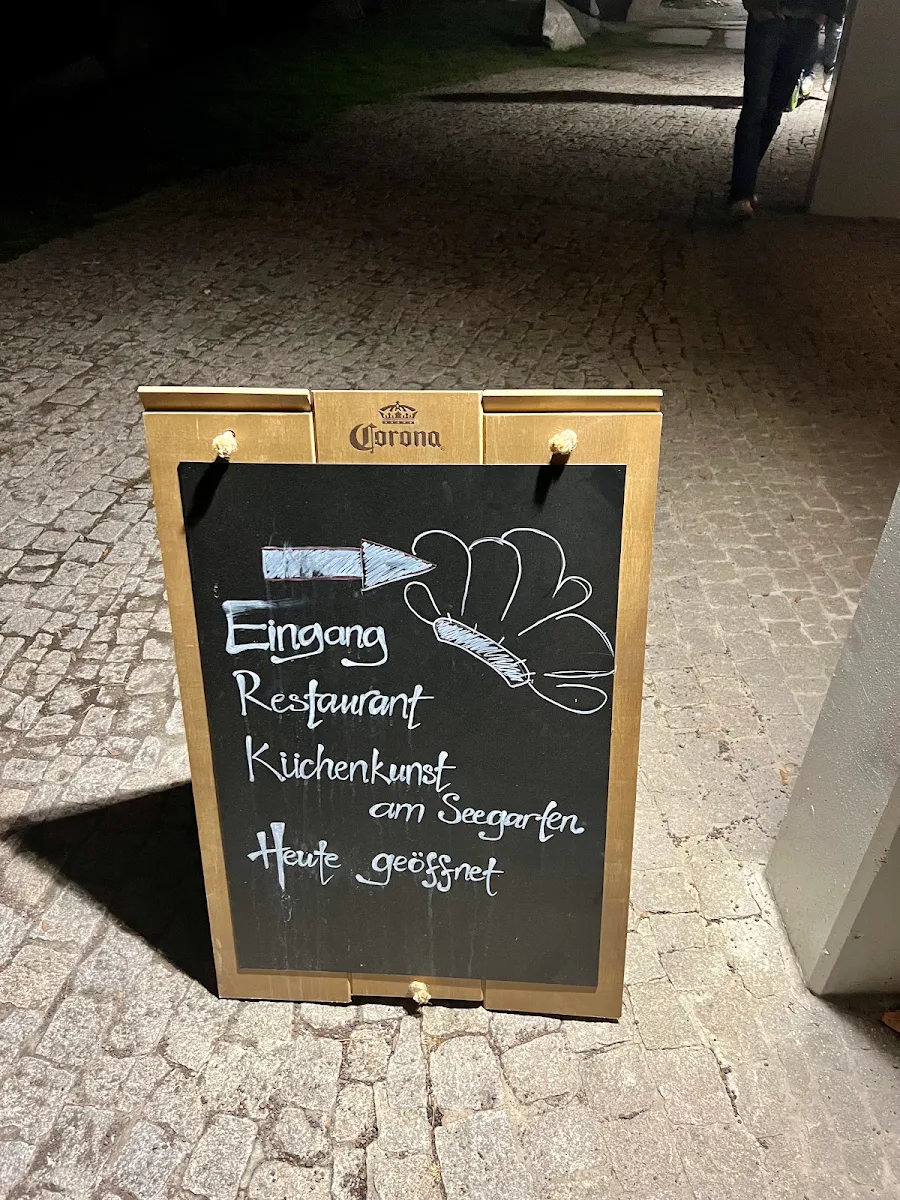 Corona
Eingang
Restaurant
Küchenkunst
am Seegarten
Heute geöffnet